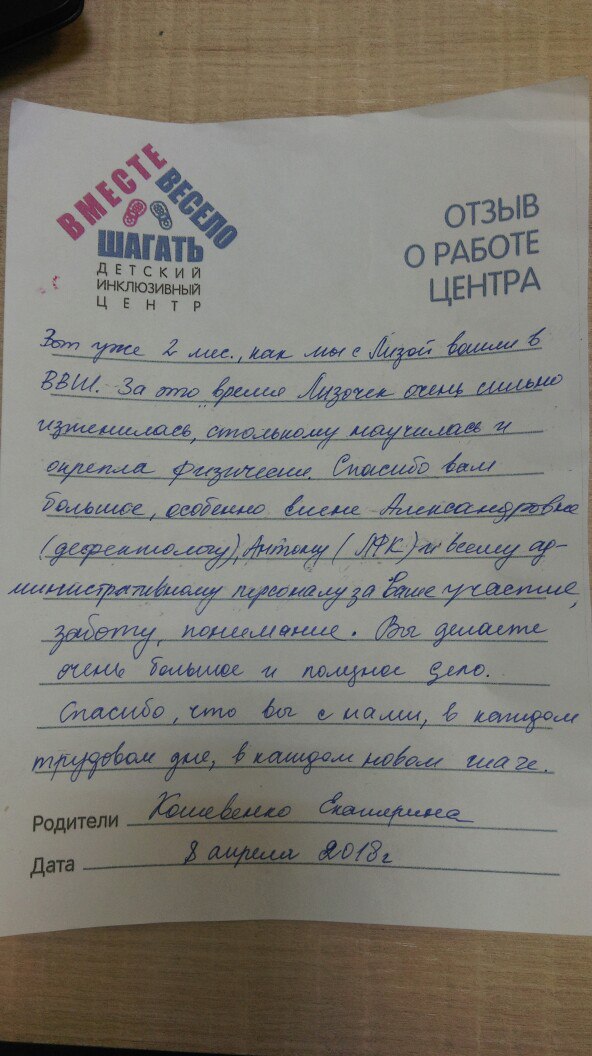 ВМЕСТЕ
ВЕСЕЛО
ШАГАТЬ
ДЕТСКИЙ
ИНКЛЮЗИВНЫЙ
ЦЕНТР
ОТЗЫВ
О РАБОТЕ
ЦЕНТРА
Вот уже 2 мес., как мы с Лизой вошли в
ВВШ. За это время Лизочек очень сильно
изменилась, стольному научилась и
окрепла физически. Спасибо вам
большое, особенно Елене Александровне
(дефектологу), Антону (ЛФК) и всему ад-
министративному персоналу за Ваше участие,
заботу, понимание. Вы делаете
очень большое и полезное дело.
Спасибо, что вы с нами, в каждом
трудовом дне, в каждом новом шаге.
Родители Кошевенко Екатерина
Дата 8 апреля 2018г